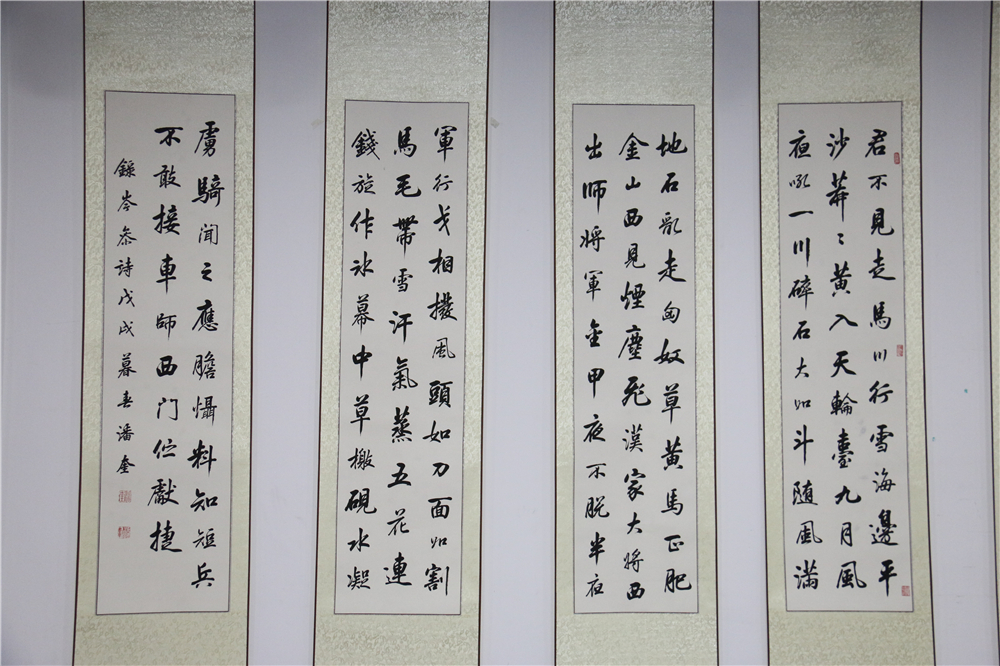 君不見走馬川行雪海邊平
沙莽〻黃入天輪臺九月風
夜吼一川碎石大如斗随風滿
地石亂走匈奴草黃馬正肥
金山西見煙塵飛漢家大將西
出師將軍金甲夜不脫半夜
軍行戈相撥風頭如刀面如割
馬毛帶雪汗氣蒸五花連
錢旋作冰幕中草檄硯水凝
虜騎聞之應膽懾料知短兵
不敢接車師西門佇獻捷
錄岑參詩戊戌暮春潘奎